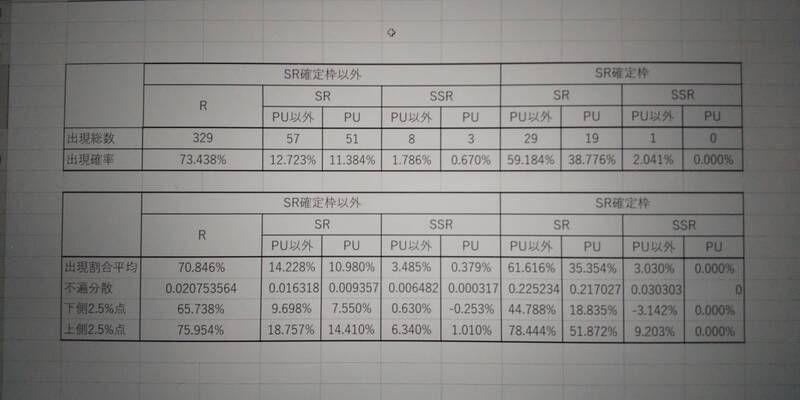 SR確定枠以外 SR確定枠
R SR SSR SR SSR
PU以外 PU PU以外 PU PU以外 PU PU以外 PU
出現総数 329 57 51 8 3 29 19 1 0
出現確率 73.438% 12.723% 11.384% 1.786% 0.670% 59.184% 38.776% 2.041% 0.000%
SR確定枠以外 SR確定枠
R SR SSR SR SSR
PU以外 PU PU以外 PU PU以外 PU PU以外 PU
出現割合平均 70.846% 14.228% 10.980% 3.485% 0.379% 61.616% 35.354% 3.030% 0.000%
不遍分散 0.020753564 0.016318 0.009357 0.006482 0.000317 0.225234 0.217027 0.030303 0
下側2.5%点 65.738% 9.698% 7.550% 0.630% -0.253% 44.788% 18.835% -3.142% 0.000%
上側2.5%点 75.954% 18.757% 14.410% 6.340% 1.010% 78.444% 51.872% 9.203% 0.000%